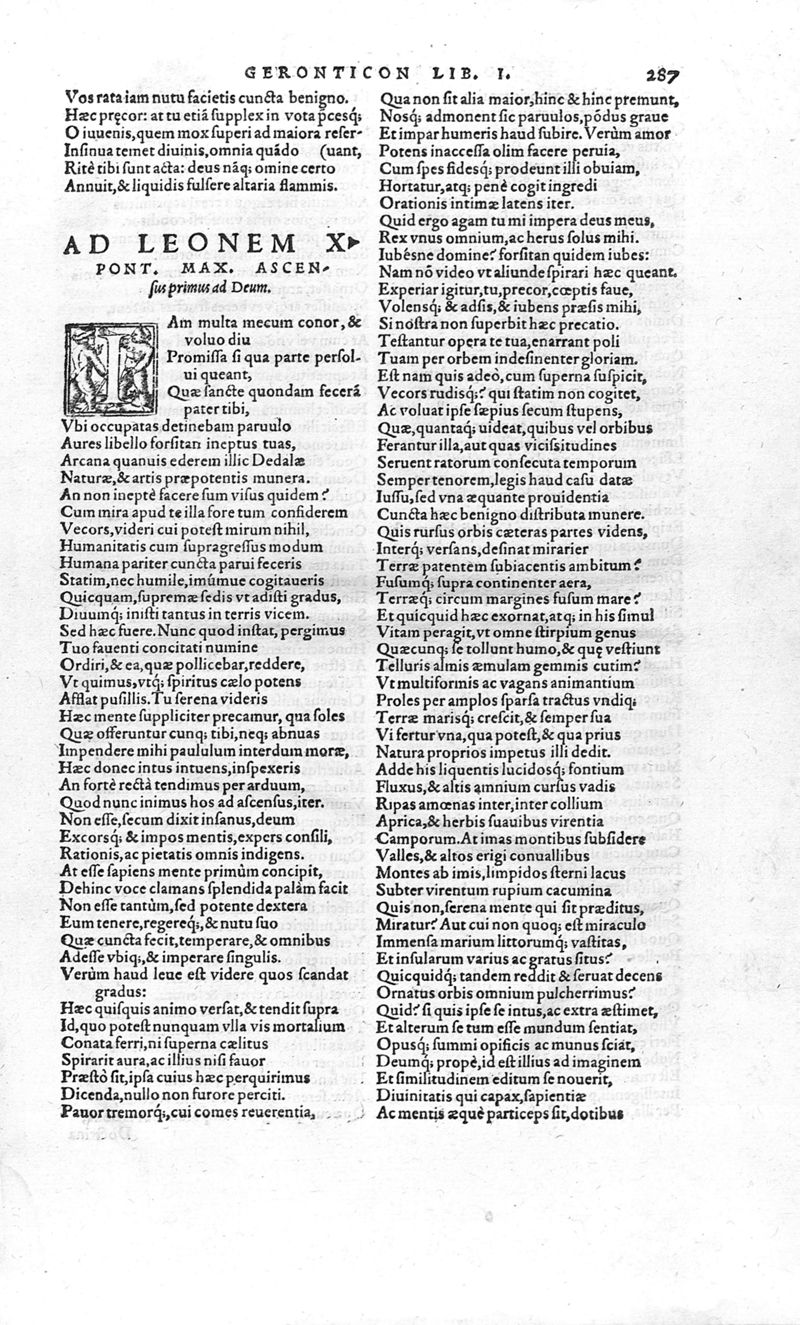 GERONTICON LIB. I. 287
Vos rata iam nutu facietis cuncta benigno.
Hæc pręcor: at tu etiā ſupplex in vota p̱cesq́;
O iuuenis, quem mox ſuperi ad maiora reſer-
Inſinua temet diuinis, omnia quādo (uant,
Ritè tibi ſunt acta: deus nāq; omine certo
Annuit, & liquidis fulſere altaria flammis.
AD LEONEM X
PONT. MAX. ASCEN-
ſus primus ad Deum.
IAm multa mecum conor, &
voluo diu
Promiſſa ſi qua parte perſol-
ui queant,
Quæ ſancte quondam fecerā
pater tibi,
Vbi occupatas detinebam paruulo
Aures libello forſitan ineptus tuas,
Arcana quanuis ederem illic Dedalæ
Naturæ, & artis præpotentis munera.
An non ineptè facere ſum viſus quidem?
Cum mira apud te illa fore tum confiderem
Vecors, videri cui poteſt mirum nihil,
Humanitatis cum ſupragreſſus modum
Humana pariter cuncta parui feceris
Statim, nec humile, imūmue cogitaueris
Quicquam, ſupremæ ſedis vt adiſti gradus,
Diuumq́; iniſti tantus in terris vicem.
Sed hæc fuere. Nunc quod inſtat, pergimus
Tuo fauenti concitati numine
Ordiri, & ea, quæ pollicebar, reddere,
Vt quimus, vtq́; ſpiritus cælo potens
Afflat puſillis. Tu ſerena videris
Hæc mente ſuppliciter precamur, qua ſoles
Quæ offeruntur cunq; tibi, neq; abnuas
Impendere mihi paululum interdum moræ,
Hæc donec intus intuens, inſpexeris
An fortè rectà tendimus per arduum,
Quod nunc inimus hos ad aſcenſus, iter.
Non eſſe, ſecum dixit inſanus, deum
Excorsq́; & impos mentis, expers conſili,
Rationis, ac pietatis omnis indigens.
At eſſe ſapiens mente primùm concipit,
Dehinc voce clamans ſplendida palàm facit
Non eſſe tantùm, ſed potente dextera
Eum tenere, regereq́;, & nutu ſuo
Quæ cuncta fecit, temperare, & omnibus
Adeſſe vbiq;, & imperare ſingulis.
Verùm haud leue eſt videre quos ſcandat
gradus:
Hæc quiſquis animo verſat, & tendit ſupra
Id, quo poteſt nunquam vlla vis mortalium
Conata ferri, ni ſuperna cælitus
Spirarit aura, ac illius niſi fauor
Præſtò ſit, ipſa cuius hæc perquirimus
Dicenda, nullo non furore perciti.
Pauor tremorq́;, cui comes reuerentia,
Qua non ſit alia maior, hinc & hinc premunt,
Nosq́; admonent ſic paruulos, pōdus graue
Et impar humeris haud ſubire. Verùm amor
Potens inacceſſa olim facere peruia,
Cum ſpes fidesq́; prodeunt illi obuiam,
Hortatur, atq; penè cogit ingredi
Orationis intimæ latens iter.
Quid ergo agam tu mi impera deus meus,
Rex vnus omnium, ac herus ſolus mihi.
Iubésne domine? forſitan quidem iubes:
Nam nō video vt aliunde ſpirari hæc queant.
Experiar igitur, tu, precor, cœptis faue,
Volensq́; & adſis, & iubens præſis mihi,
Si noſtra non ſuperbit hæc precatio.
Teſtantur opera te tua, enarrant poli
Tuam per orbem indeſinenter gloriam.
Eſt nam quis adeò, cum ſuperna ſuſpicit,
Vecors rudisq́;? qui ſtatim non cogitet,
Ac voluat ipſe ſæpius ſecum ſtupens,
Quæ, quantaq́; uideat, quibus vel orbibus
Ferantur illa, aut quas viciſsitudines
Seruent ratorum conſecuta temporum
Semper tenorem, legis haud caſu datæ
Iuſſu, ſed vna æquante prouidentia
Cuncta hæc benigno diſtributa munere.
Quis rurſus orbis cæteras partes videns,
Interq́; verſans, deſinat mirarier
Terræ patentem ſubiacentis ambitum?
Fuſumq́; ſupra continenter aera,
Terræq́; circum margines fuſum mare?
Et quicquid hæc exornat, atq; in his ſimul
Vitam peragit, vt omne ſtirpium genus
Quæcunq; ſe tollunt humo, & quę veſtiunt
Telluris almis æmulam gemmis cutim?
Vt multiformis ac vagans animantium
Proles per amplos ſparſa tractus vndiq;
Terræ marisq́; creſcit, & ſemper ſua
Vi fertur vna, qua poteſt, & qua prius
Natura proprios impetus illi dedit.
Adde his liquentis lucidosq́; fontium
Fluxus, & altis amnium curſus vadis
Ripas amœnas inter, inter collium
Aprica, & herbis ſuauibus virentia
Camporum. At imas montibus ſubſidere
Valles, & altos erigi conuallibus
Montes ab imis, limpidos ſterni lacus
Subter virentum rupium cacumina
Quis non, ſerena mente qui ſit præditus,
Miratur? Aut cui non quoq; eſt miraculo
Immenſa marium littorumq́; vaſtitas,
Et inſularum varius ac gratus ſitus?
Quicquidq́; tandem reddit & ſeruat decens
Ornatus orbis omnium pulcherrimus?
Quid? ſi quis ipſe ſe intus, ac extra æſtimet,
Et alterum ſe tum eſſe mundum ſentiat,
Opusq́; ſummi opificis ac munus ſciat,
Deumq́; propè, id eſt illius ad imaginem
Et ſimilitudinem editum ſe nouerit,
Diuinitatis qui capax, ſapientiæ
Ac mentis æquè particeps ſit, dotibus